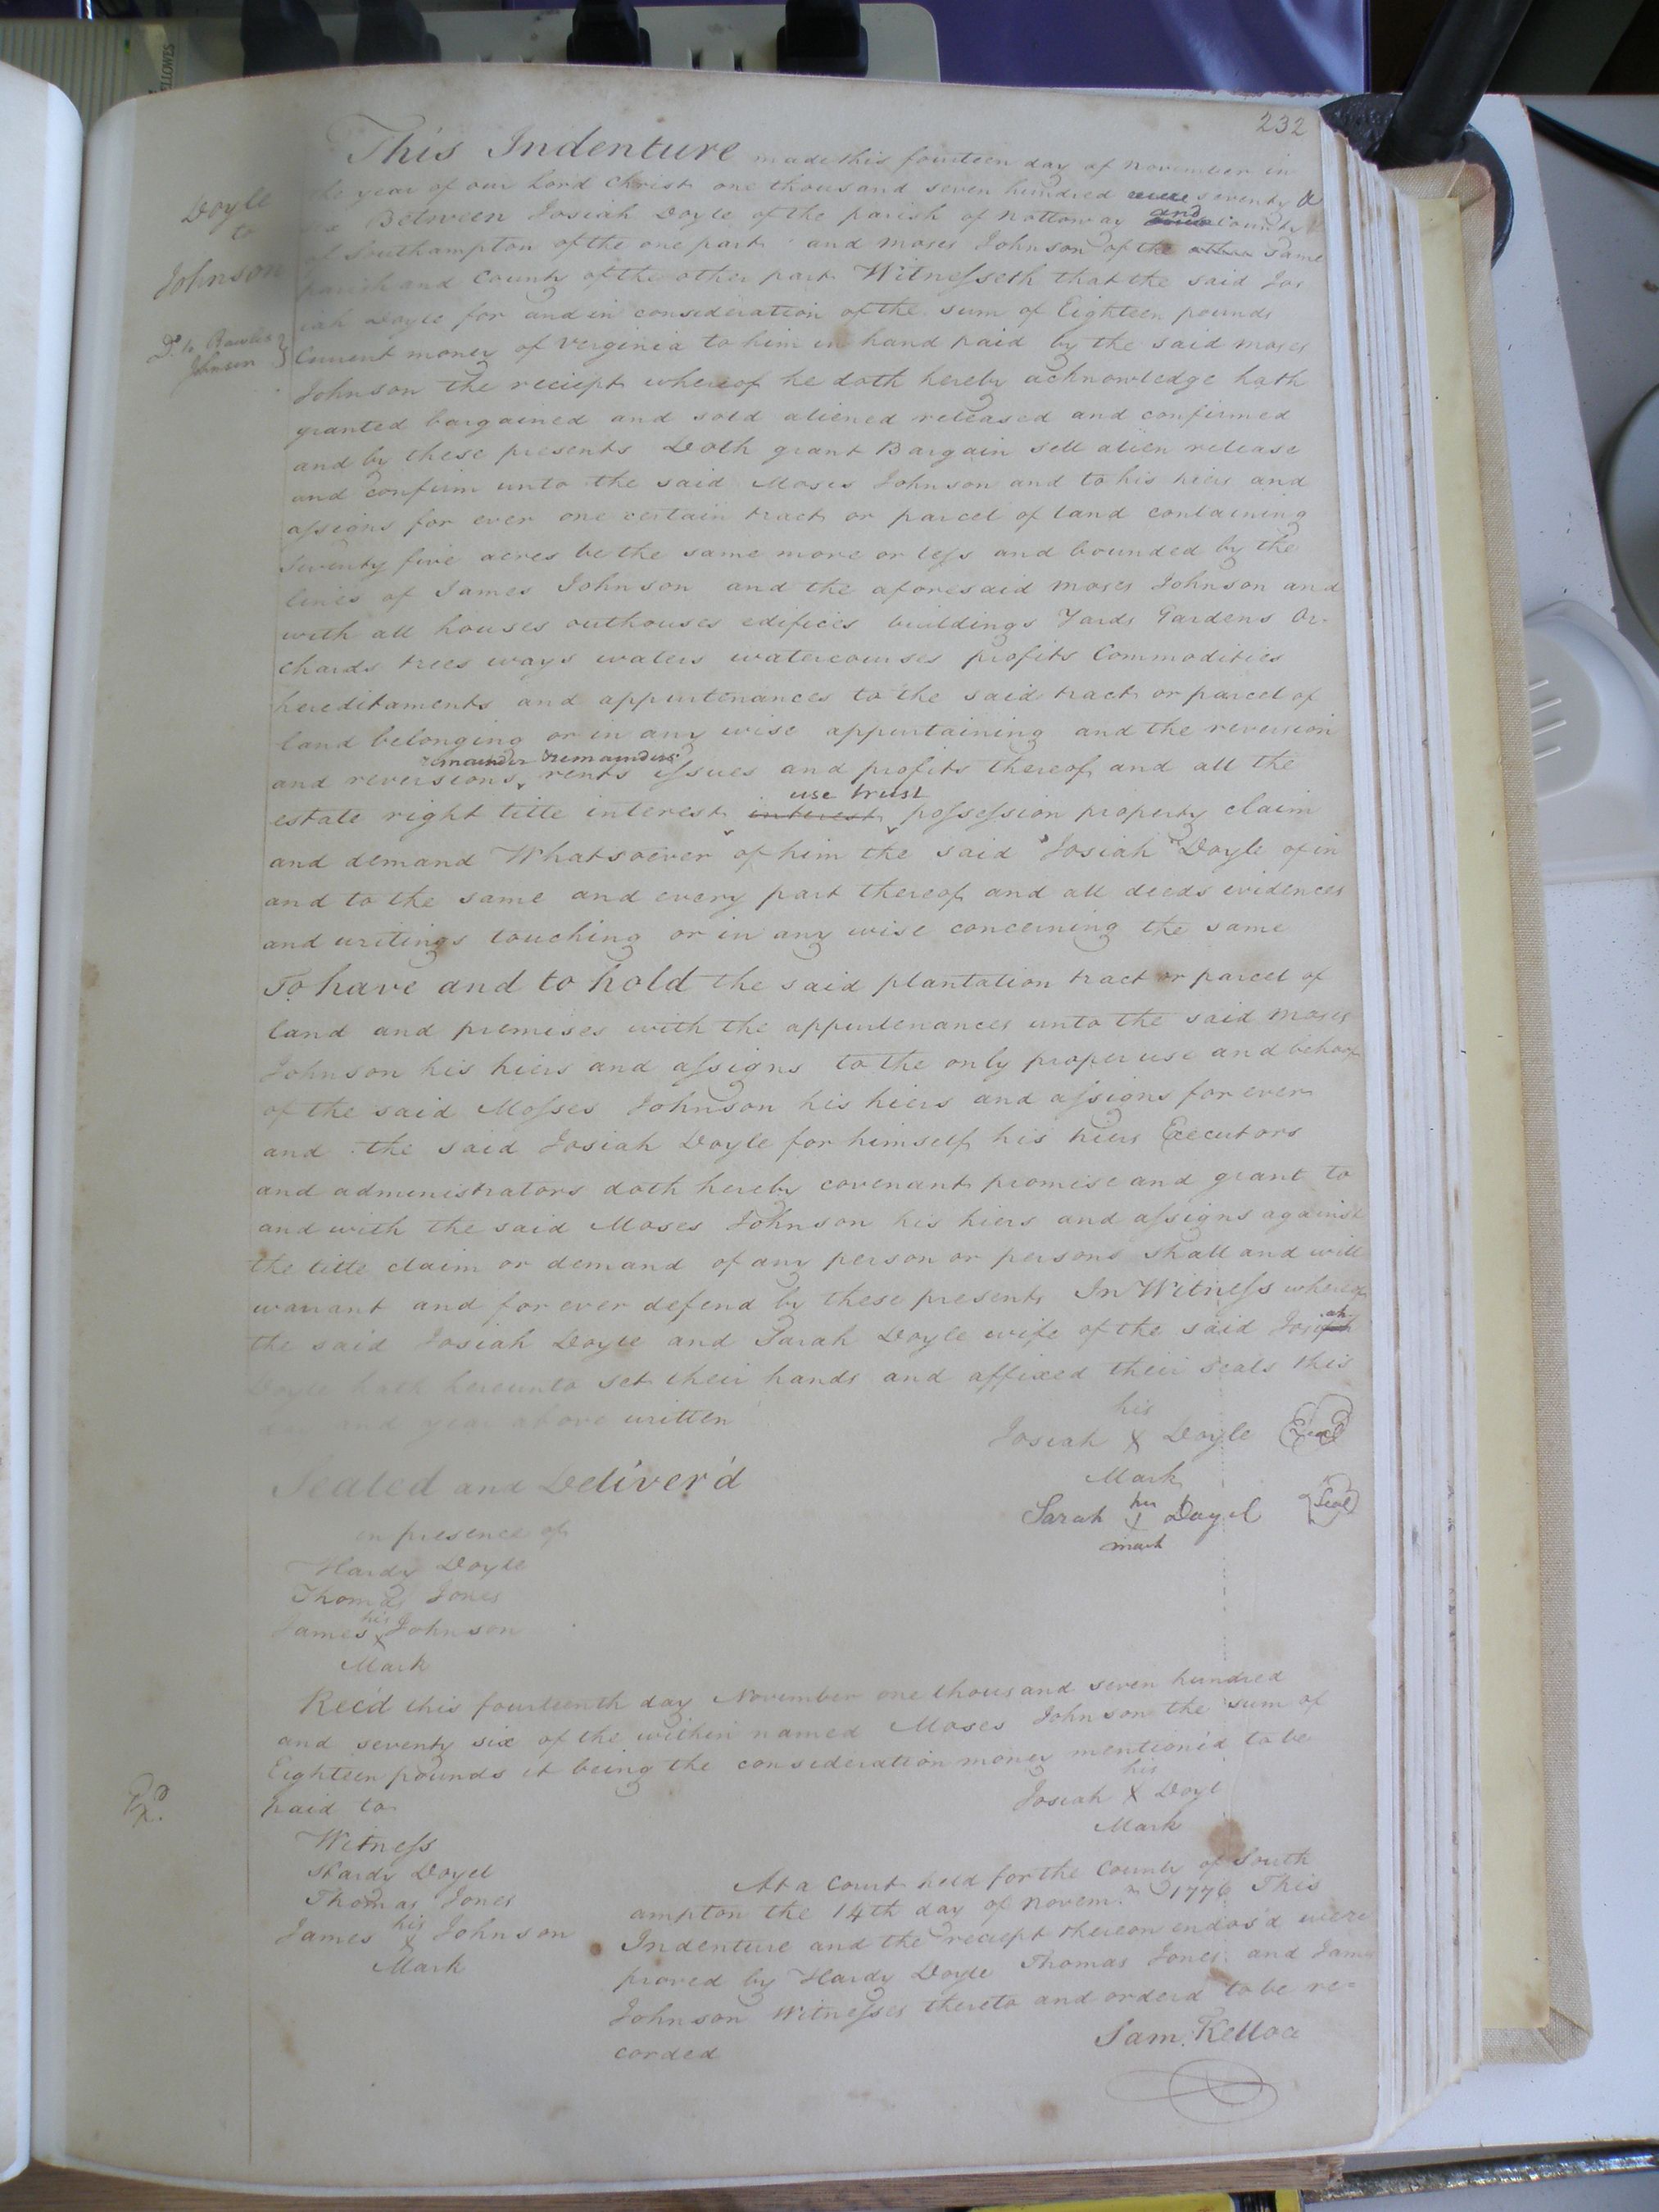 232
Doyle
to
Johnson
Do. to Rawles
Johnson
This Indenture made this fourteen day of November in
the year of our Lord Christ one thousand seven hundred seventy &
six Between Josiah Doyle of the parish of Nottoway and County
of Southampton of the one part and Moses Johnson of the other same
parish and County of the other part Witnesseth that the said Jos
iah Doyle for and in consideration of the sum of Eighteen pounds
Current money of Verginia to him in hand paid by the said Moses
Johnson the reciept whereof he doth hereby acknowledge hath
granted bargained and sold aliened released and confirmed
and by these presents Doth grant Bargain sell alien release
and confirm unto the said Moses Johnson and to his hiers and
assigns for ever one certain tract or parcel of land containing
Seventy five acres be the same more or less and bounded by the
lines of James Johnson and the aforesaid Moses Johnson and
with all houses outhouses edifices buildings Yards Gardens Or-
chards trees ways waters watercourses profits Commodities
hereditaments and appurtenances to the said tract or parcel of
land belonging or in any wise appurtaining and the reversion
remainder remainders
and reversions rents issues and profits thereof and all the
use trust
estate right title interest interest possession property claim
and demand Whatsoever of him the said Josiah Doyle of in
and to the same and every part thereof and all deeds evidences
and writings touching or in any wise concerning the same
To have and to hold the said plantation tract or parcel of
land and premises with the appurtenances unto the said Moses
Johnson his hiers and assigns to the only proper use and behoof
of the said Mosses Johnson his hiers and assigns for ever
and the said Josiah Doyle for himself his hiers Executors
and administrators doth hereby covenant promise and grant to
and with the said Moses Johnson his hiers and assigns against
the title claim or demand of any person or persons shall and will
warrant and for ever defend by these presents In Witness whereof
the said Josiah Doyle and Sarah Doyle wife of the said Josiah
Doyle hath hereunto set their hands and affixed their seals this
day and year above written
his
Josiah X Doyle Seal
Mark
Sealed and Deliver'd
her
Sarah + Doyel Seal
mark
in presence of
Hardy Doyle
Thomas Jones
his
James X Johnson
Mark
Rec'd this fourteenth day November one thousand seven hundred
and seventy six of the within named Moses Johnson the sum of
Eighteen pounds it being the consideration money mention'd to be
paid to
his
Josiah X Doyl
Mark
Witness
Hardy Doyel
Thomas Jones
his
James X Johnson
Mark
At a Court held for the County of South
ampton the 14th day of Novem.r 1776 This
Indenture and the reciept thereon endos'd were
proved by Hardy Doyle Thomas Jones and James
Johnson Witnesses thereto and orderd to be re=
corded
Sam. Kelloa